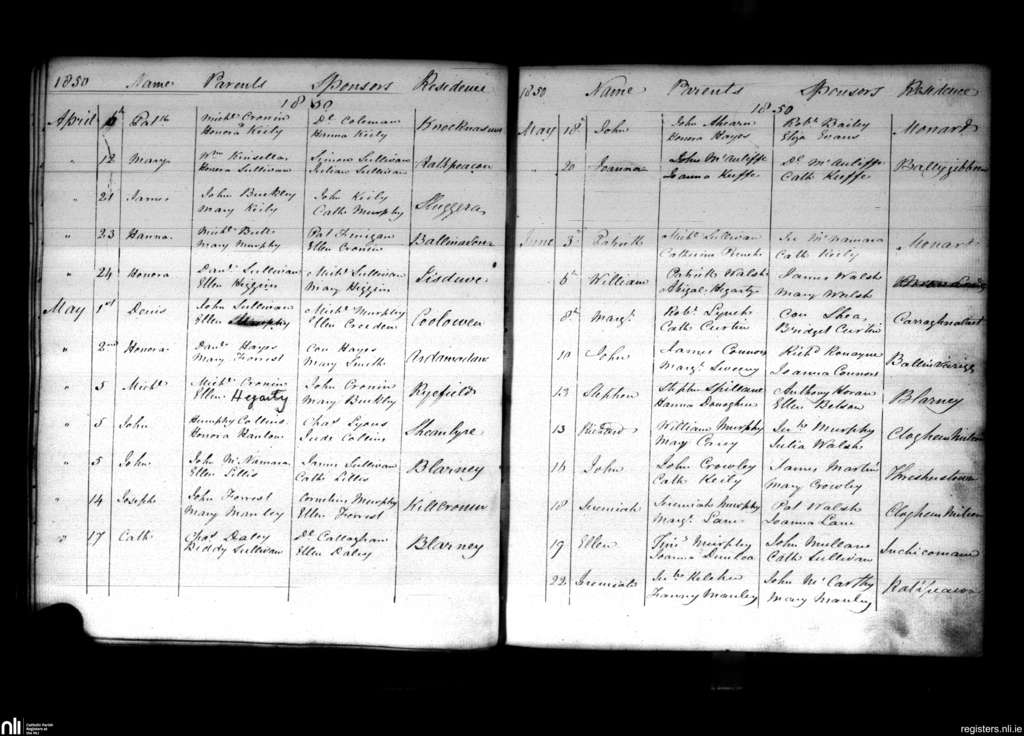 1850 Name Parents Sponsors Residence
1850
April 6th Patk Michl Cronin Dl Coleman
Honora Kiely Hanna Kiely
" 12 Mary Wm Kinsella Simon Sullivan Rathpeacon
Honora Sullivan Julian Sullivan
" 21 James John Buckley John Kiely
Mary Kiely Cath Murphy
" 23 Hanna Michl Pat Finigan
Mary Murphy Ellen Cronin
" 24 Honora Danl Sullivan Michl Sullivan
Ellen Higgins Mary Higgins
May 1st Denis John Sullivan Michl Murphy Coolowen
Ellen Murphy Ellen Creedon
" 2nd Honora Danl Hayes Con Hayes
Mary Forrest Mary Smith
" 5 Michl Michl Cronin John Cronin Ryefield
Ellen Hegarty Mary Buckley
" 5 John Humphy Collins Chas Lyons
Honora Hanlon Jude Collins
" 5 John John McNamara James Sullivan Blarney
Ellen Lillis Cath Lillis
" 14 Joseph John Forrest Cornelius Murphy Killcronin
Mary Manley Ellen Forrest
" 17 Cath Chas Daley Dl Callaghan Blarney
Biddy Sullivan Ellen Daley
1850 Name Parents Sponsors Residence
1850
May 18th John John Ahearn Robt Bailey Monard
Honora Hayes Eliza Evans
20 Joanna John McAuliffe Dl McAuliffe Ballygibbon
Joanna Keeffe Cath Keeffe
June 3d Patrick Michl Sullivan McNamara Monard
Catherine Cath Kiely
6th William Patrick Walsh James Walsh
Abigal Hegarty Mary Walsh
8th Margt Robt Lynch Con Shea
Cath Curtin Bridget Curtin
10 John James Connors Richd Ronayne
Margt Sweeny Joanna Connors
13 Stephen Stephn Spillane Anthony Horan Blarney
Hanna Donoghue Ellen
13 Richard William Murphy Murphy
Mary Julia Walsh
14 John John Crowley James Martin
Cath Kiely Mary Crowley
18 Jeremiah Jeremiah Murphy Pat Walsh
Margt Lane Joanna Lane
19 Ellen Timy Murphy John Mullane
Joanna Dunlea Cath Sullivan
22 Jeremiah John McCarthy
Fanny Manley Mary Manley
nli
Catholic Parish
Registers at
the NLI
registers.nli.ie